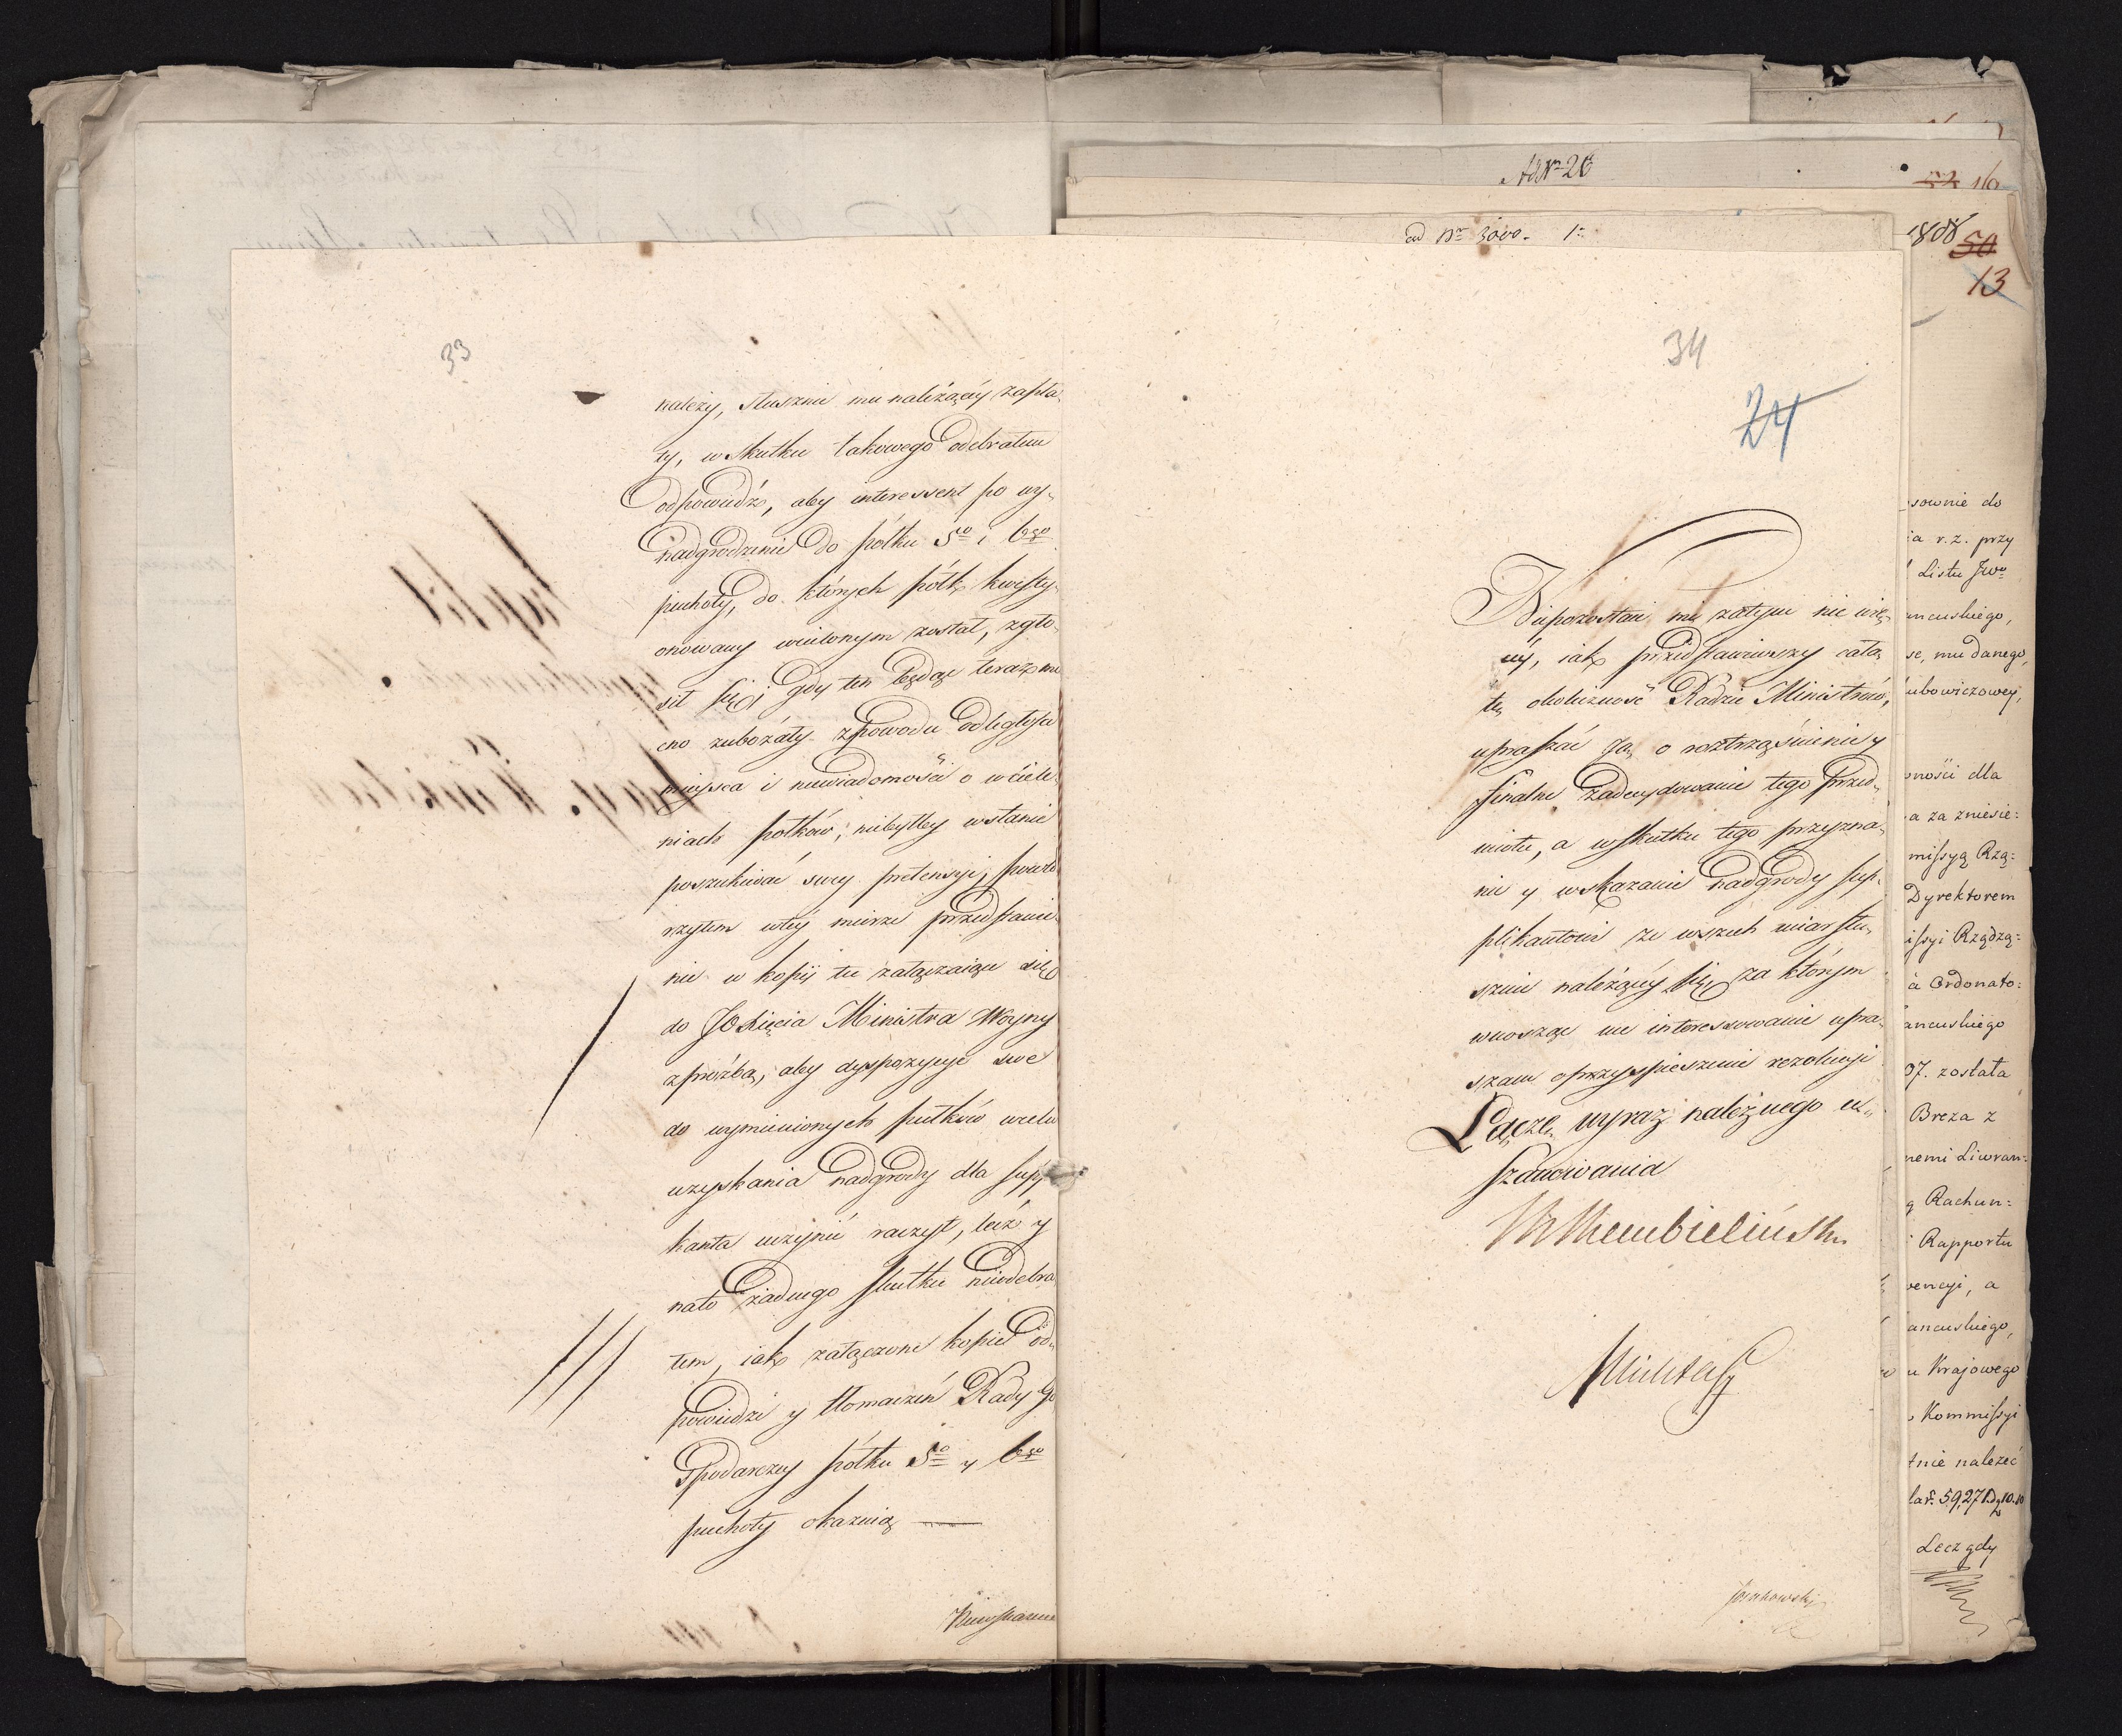 33
należy, słusznie mu należącéy zapła„
ty, w skutku takowego odebrałem
odpowiedź, aby interessent po wy„
nadgrodzenie do pólku 5go i 6go
piechoty, do których pólk kwesty„
onowany wcielonym został, zgło„
sił się; gdy ten będąc teraz mo„
cno zubożały zpowodu odległości
mieysca i niewiadomości o wciele„
niach pólków, niebyłby wstanie
poszukiwać swey pretensyi, powtó„
rzyłem wtéy mierze przedstawie„
nie w kopii tu załączaiące się
do JO Xięcia Ministra Woyny
zprośbą, aby dyspozycye swe
do wymienionych pułków wcelu
uzyskania nadgrody dla supli„
kanta uczynić raczył, lecz y
nato żadnego skutku nieodebra„
łem, iak załączone kopie od„
powiedzi y tłomaczeń Rady Go„
spodarczey pólku 5go y 6go
piechoty okazuią
Niepozostaie
34
24
Niepozostaie mi zatym nic wię„
céy, iak przedstawiwszy całą
tę okoliczność Radzie Ministrów,
upraszać Ją o roztrząśnienie y
finalne zadecydowanie tego przed„
miotu, a wskutku tego przyzna„
nie y wskazanie nadgrody sup„
plikantowi ze wszech miar słu„
sznie należącéy się, za którym
wnosząc me interessowanie upra„
szam oprzyspieszenie rezolucyi
Łączę wyraz należnego u„
szanowania
Rembieliński
ad Nro 3000. 1o
Ad Nro 26
52 16
1808
50
13
sownie do
ia r. z. przy
Listu JWo
ancuskiego,
se, mu danego,
ubowiczowey,
ności dla
a za zniesie:
missyą Rzą:
Dyrektorem
issyi Rządzą:
à Ordonato:
ancuskiego
07. została
Breza z
nemi Liwran:
ą Rachun:
Rapportu
wencyi, a
ancuskiego,
u Krajowego
Kommissyi
tnie należeć
Lecz gdy